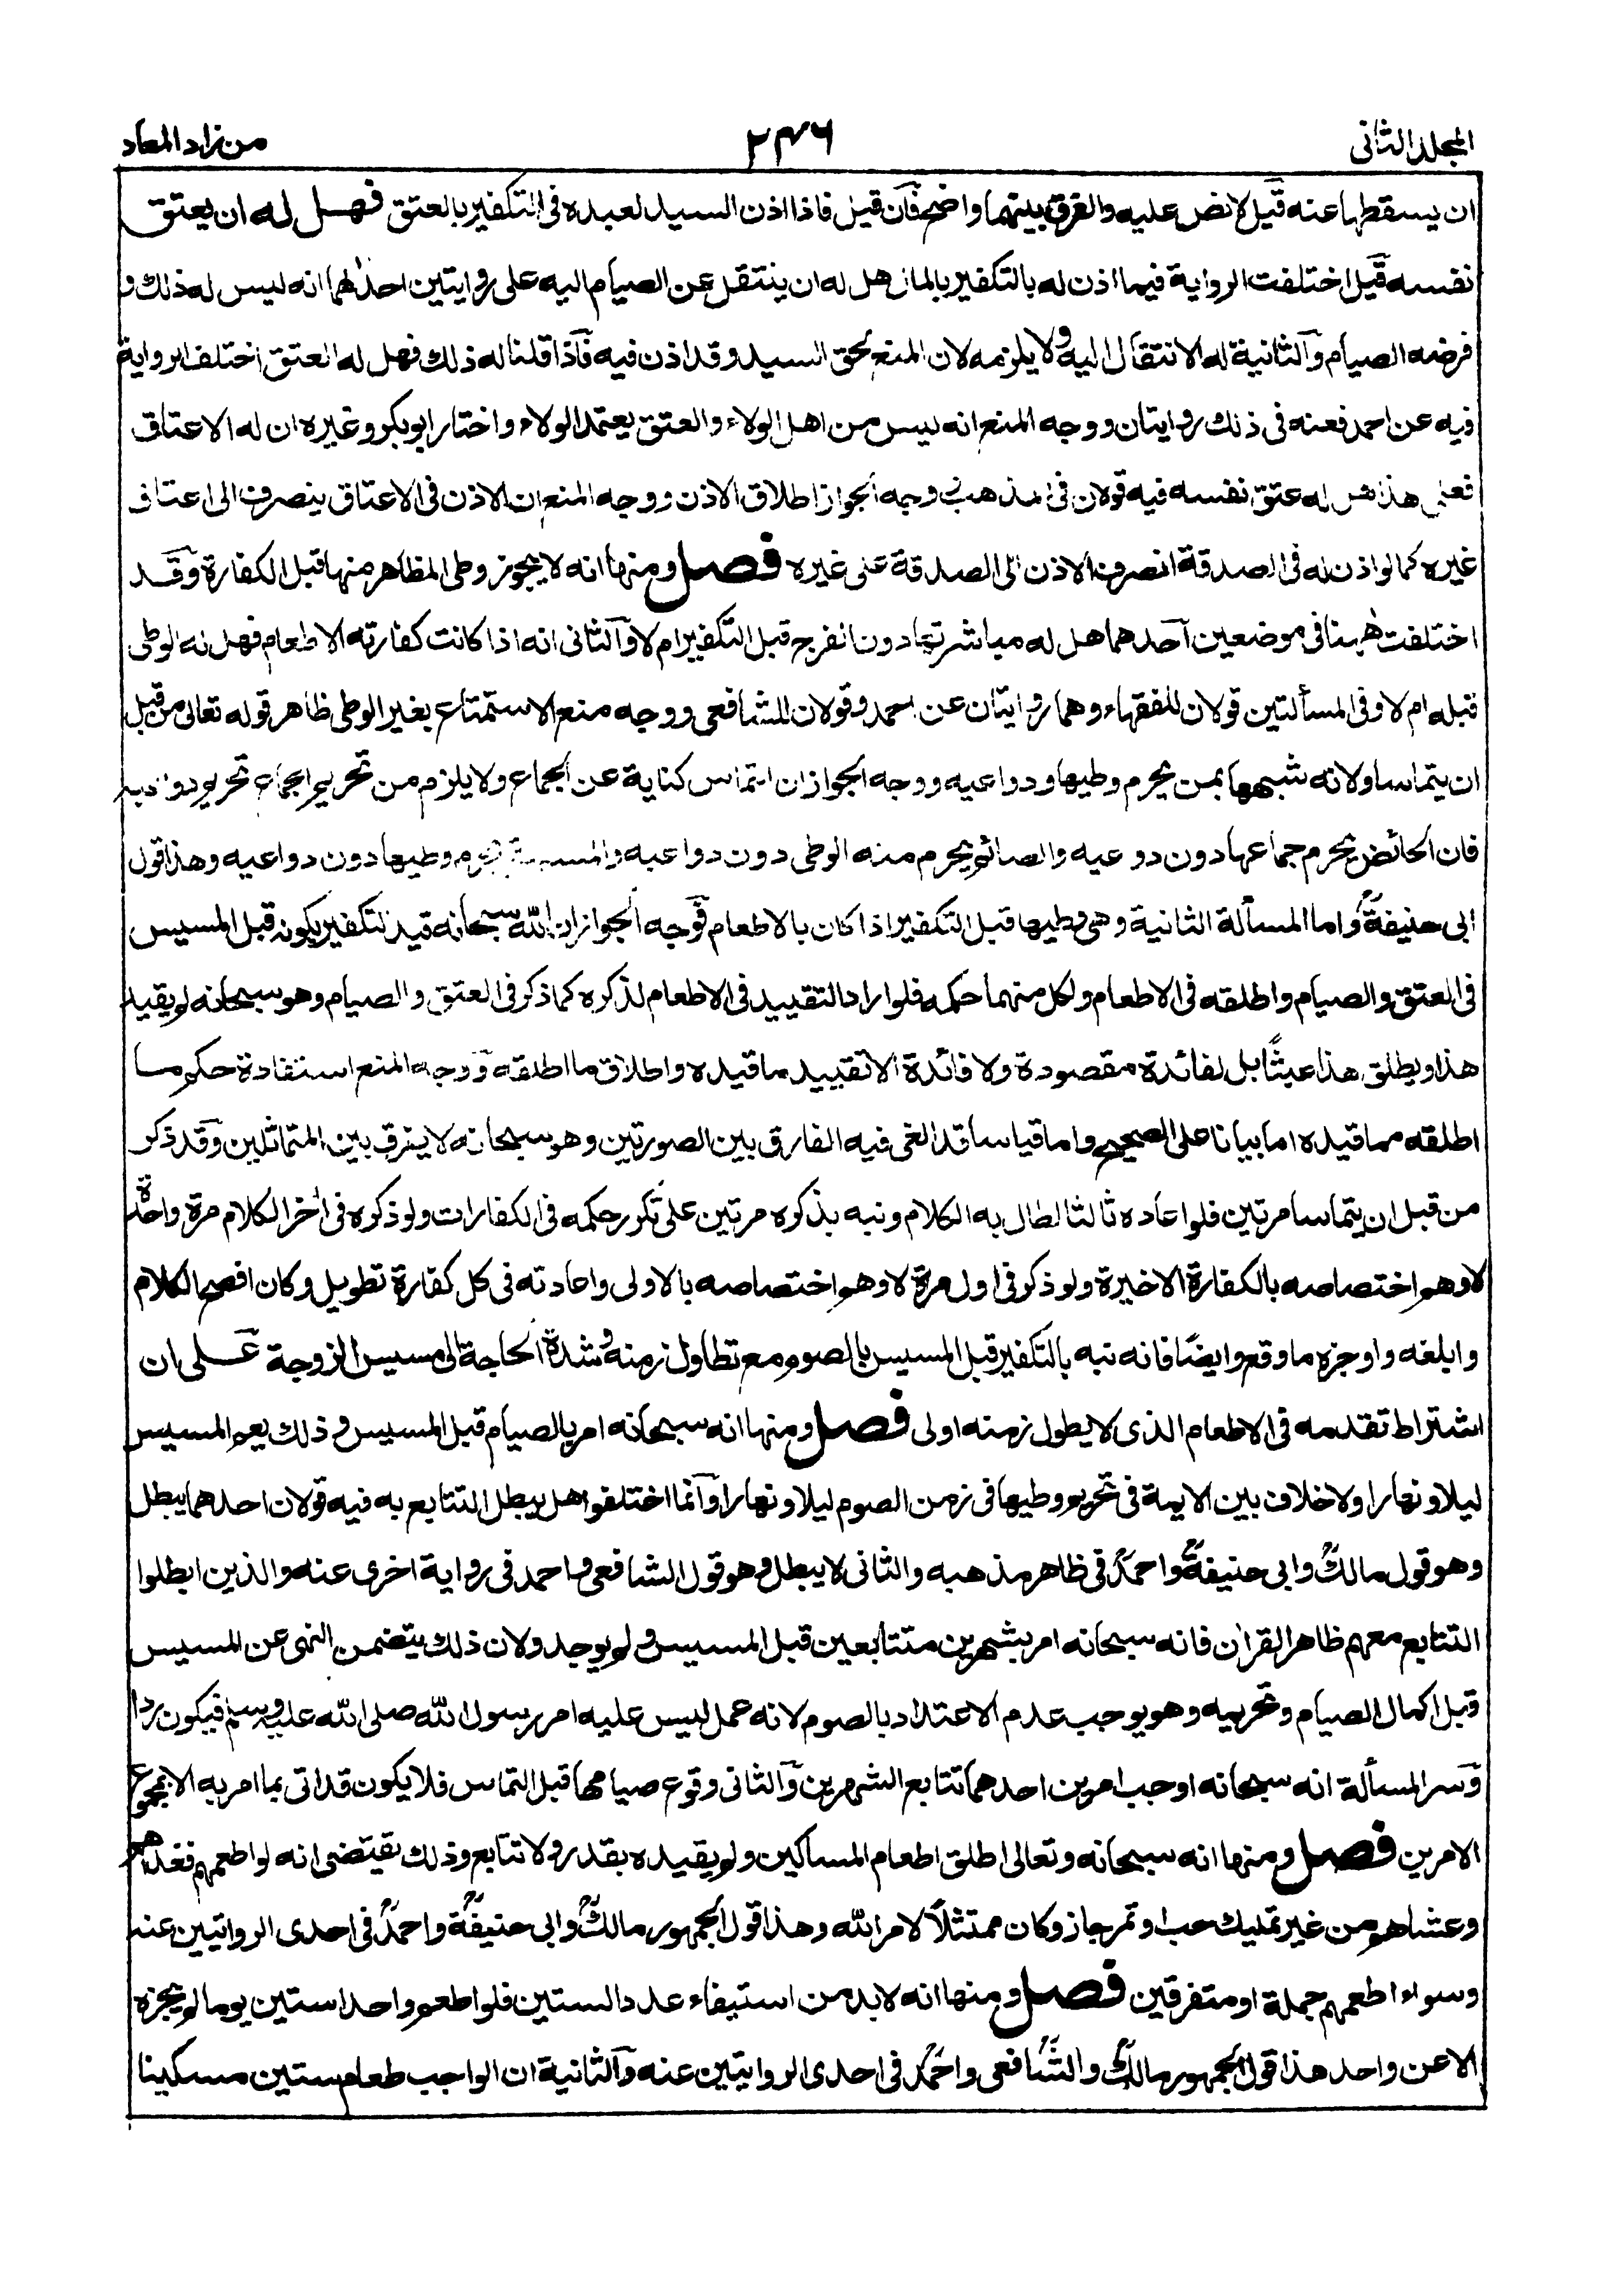 المجلد الثانى
٢٣٦
من زاد المعاد
ان يسقطها عنه قيل لا نص عليه والفرق بينهما واضح فان قيل فاذا اذن السيد لعبده فى التكفير بالعتق فهل له ان يعتق
نفسه قيل اختلفت الرواية فيما اذن له بالتكفير بالمال هل له ان ينتقل عن الصيام اليه على روايتين احدٰهما انه ليس له ذلك و
فرضه الصيام والثانية له الانتقال اليه ولا يلزمه لان المنع لحق السيد وقد اذن فيه فاذا قلنا له ذلك فهل له العتق اختلف الرواية
فيه عن احمد فعنه فى ذلك روايتان ووجه المنع انه ليس من اهل الولاء والعتق يعتمد الولاء واختار ابو بكر وغيره ان له الاعتاق
فعلى هذا هل له عتق نفسه فيه قولان فى المذهب وجه الجواز اطلاق الاذن ووجه المنع ان الاذن فى الاعتاق ينصرف الى اعتاق
غيره كما لو اذن له فى الصدقة انصرف الاذن الى الصدقة على غيره فصل ومنها انه لا يجوز وطى المظاهر منها قبل الكفارة وقد
اختلفت ههنا فى موضعين احدهما هل له مباشرتها دون الفرج قبل التكفير ام لا والثانى انه اذا كانت كفارته الاطعام فهل له الوطى
قبله ام لا وفى المسألتين قولان للفقهاء وهما روايتان عن احمد وقولان للشافعى ووجه منع الاستمتاع بغير الوطى ظاهر قوله تعالى من قبل
ان يتماسا ولانه شبهها بمن يحرم وطيها ودواعيه ووجه الجواز ان التماس كناية عن الجماع ولا يلزم من تحريم الجماع تحريم دواعيه
فان الحائض يحرم جماعها دون دواعيه والصائم يحرم منه الوطى دون دواعيه والمسبية يحرم وطيها دون دواعيه وهذا قول
ابى حنيفةؒ واما المسألة الثانية وهى وطيها قبل التكفير اذا كان بالاطعام فوجه الجواز ان الله سبحانه قيد التكفير بكونه قبل المسيس
فى العتق والصيام واطلقه فى الاطعام ولكل منهما حكمه فلو اراد التقييد فى الاطعام لذكره كما ذكر فى العتق والصيام وهو سبحانه لم يقيد
هذا ويطلق هذا عبثًا بل لفائدة مقصودة ولا فائدة الا تقييد ما قيده واطلاق ما اطلقه ووجه المنع استفادة حكم ما
اطلقه مما قيده اما بيانا على الصحيح واما قياسا قد الغى فيه الفارق بين الصورتين وهو سبحانه لا يفرق بين المتماثلين وقد ذكر
من قبل ان يتماسا مرتين فلو اعاده ثالثا لطال به الكلام ونبه بذكره مرتين على تكرر حكمه فى الكفارات ولو ذكره فى آخر الكلام مرة واحدة
لاوهم اختصاصه بالكفارة الاخيرة ولو ذكر فى اول مرة لاوهم اختصاصه بالاولى واعادته فى كل كفارة تطويل وكان افصح الكلام
وابلغه واوجزه ما وقع وايضًا فانه نبه بالتكفير قبل المسيس بالصوم مع تطاول زمنه وشدة الحاجة الى مسيس الزوجة على ان
اشتراط تقدمه فى الاطعام الذى لا يطول زمنه اولى فصل ومنها انه سبحانه امر بالصيام قبل المسيس و ذلك يعم المسيس
ليلا ونهارا ولا خلاف بين الايمة فى تحريم وطيها فى زمن الصوم ليلا ونهارا وانما اختلفوا هل يبطل التتابع به فيه قولان احدهما يبطل
وهو قول مالكؒ وابى حنيفةؒ واحمدؒ فى ظاهر مذهبه والثانى لا يبطل وهو قول الشافعى واحمد فى رواية اخرى عنه والذين ابطلوا
التتابع معهم ظاهر القرآن فانه سبحانه امر بشهرين متتابعين قبل المسيس ولم يوجد ولان ذلك يتضمن النهى عن المسيس
قبل اكمال الصيام وتحريمه وهو يوجب عدم الاعتداد بالصوم لانه عمل ليس عليه امر رسول الله صلى الله عليه وسلم فيكون ردا
وسر المسألة انه سبحانه اوجب امرين احدهما تتابع الشهرين والثانى وقوع صيامهما قبل التماس فلا يكون قد اتى بما امر به الا بمجموع
الامرين فصل ومنها انه سبحانه وتعالى اطلق اطعام المساكين ولم يقيده بقدر ولا تتابع وذلك يقتضى انه لو اطعمهم فغداهم
وعشاهم من غير تمليك حب او تمر جاز وكان ممتثلًا لامر الله وهذا قول الجمهور مالكؒ وابى حنيفةؒ واحمدؒ فى احدى الروايتين عنه
وسواء اطعمهم جملة او متفرقين فصل ومنها انه لا بد من استيفاء عدد الستين فلو اطعم واحدا ستين يوما لم يجزه
الا عن واحد هذا قول الجمهور مالكؒ والشافعى واحمدؒ فى احدى الروايتين عنه والثانية ان الواجب طعام ستين مسكينا